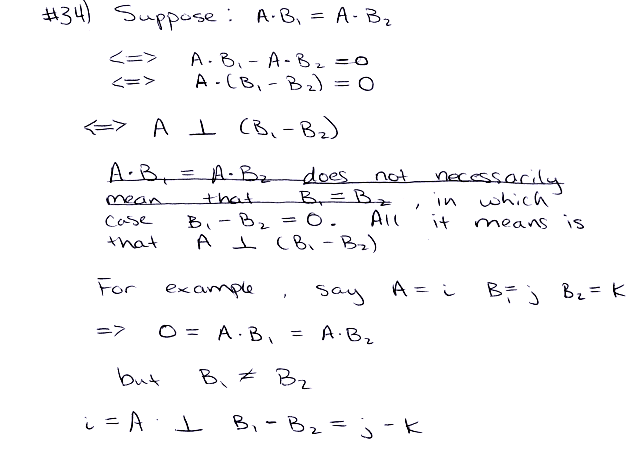 #34) Suppose: A·B₁ = A·B₂
<=> A·B₁ - A·B₂ = 0
<=> A·(B₁ - B₂) = 0
<=> A ⊥ (B₁ - B₂)
A·B₁ = A·B₂ does not necessarily
mean that B₁ = B₂, in which
case B₁ - B₂ = 0. All it means is
that A ⊥ (B₁ - B₂)
For example, say A = i B₁ = j B₂ = k
=> 0 = A·B₁ = A·B₂
but B₁ ≠ B₂
i = A ⊥ B₁ - B₂ = j - k